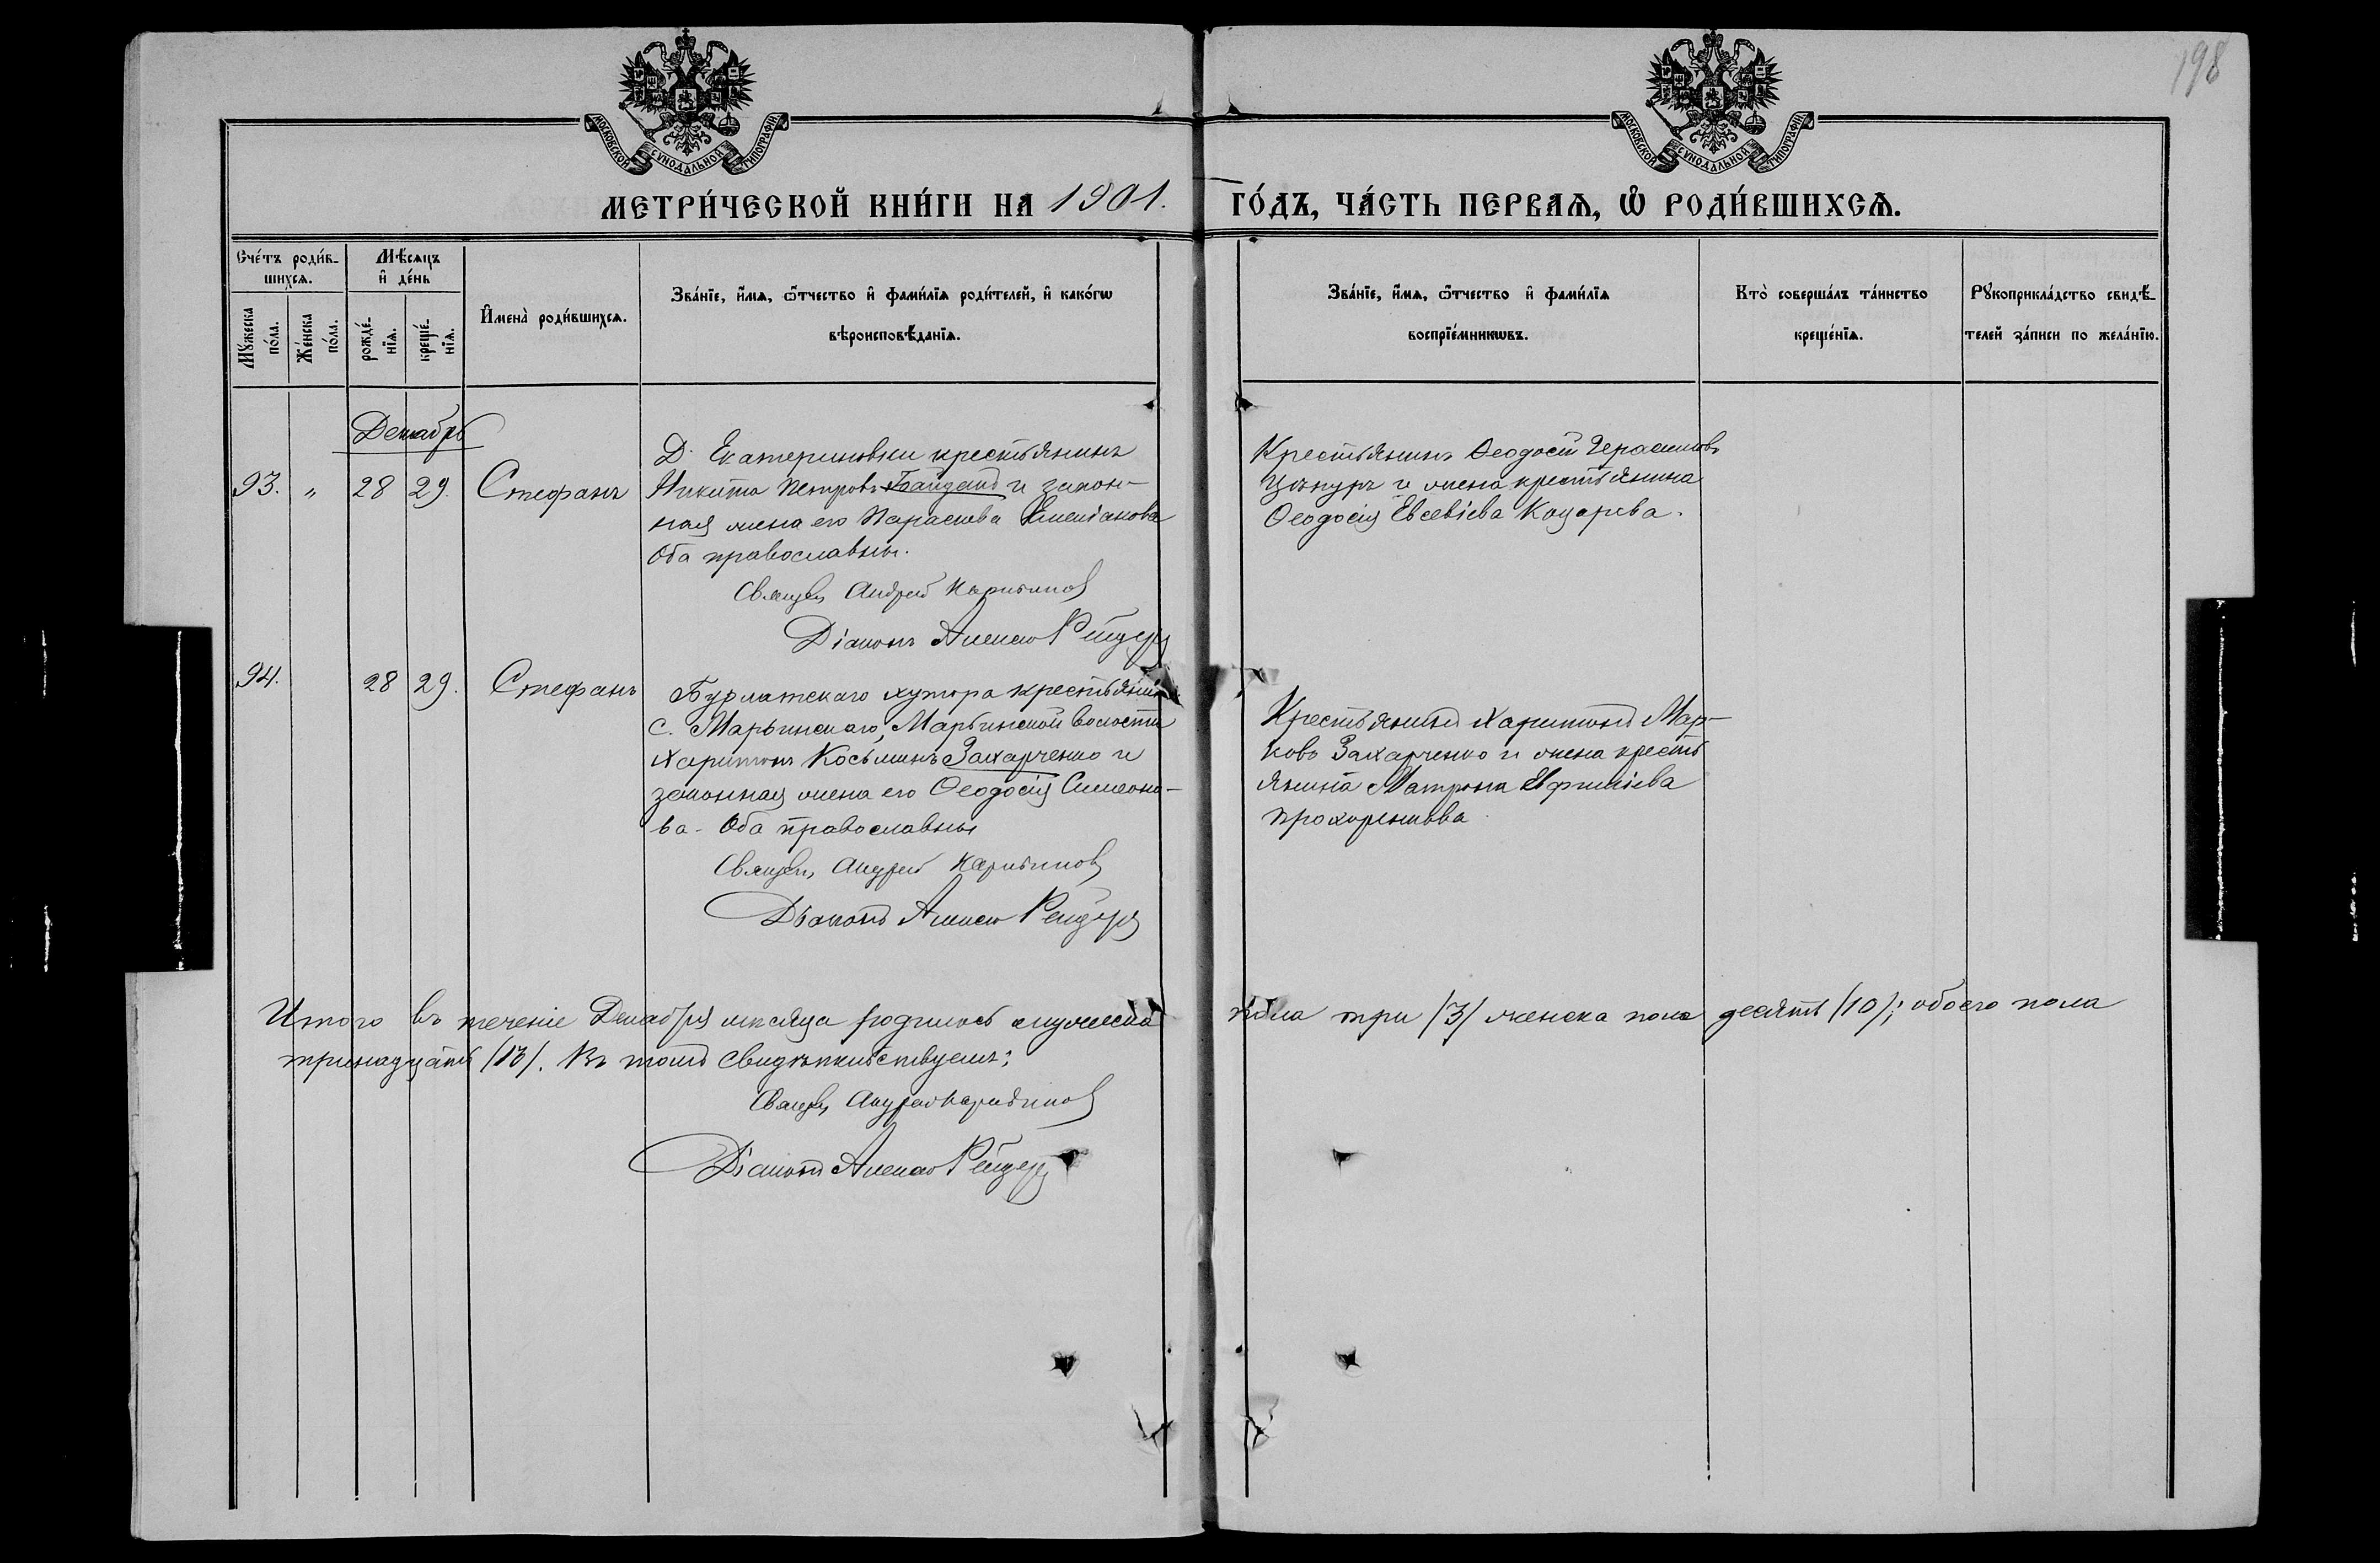 198
МОСКОВСКОЙ СѴНОДАЛЬНОЙ ТИПОГРАФІИ
МОСКОВСКОЙ СѴНОДАЛЬНОЙ ТИПОГРАФІИ
МЕТРИ́ЧЕСКОЙ КНИ́ГИ НА 1901. ГО́ДЪ, ЧА́СТЬ ПЕРВАѦ, Ѡ҆ РОДИ́ВШИХСѦ.
Сче́тъ роди́в-
шихсѧ.
Мꙋ́жеска
по́ла.
Же́нска
по́ла.
Мѣ́сѧцъ
и҆ де́нь
рожде́-
нїѧ.
креще́-
нїѧ.
И҆мена̀ роди́вшихсѧ.
Зва́нїе, и҆́мѧ, ѻ҆́тчество и҆ фами́лїѧ роди́телей, и҆ како́гѡ
вѣроисповѣ́данїѧ.
Зва́нїе, и҆́мѧ, ѻ҆́тчество и҆ фами́лїѧ
воспрїе́мникѡвъ.
Кто̀ соверша́лъ та́инство
креще́нїѧ.
Рꙋкоприкла́дство свидѣ́-
телей за́писи по жела́нїю.
Декабрь
93. „ 28 29. Стефанъ
Д. Екатериновки крестьянинъ
Никита Петровъ Байдакъ и закон-
ная жена его Параскева Емеліанова
Оба православны.
Священ. Андрей
Діаконъ Алексій
Крестьянинъ Ѳеодосій Герасимовъ
и жена крестьянина
Ѳеодосія Евсевіева Коцарева.
94. 28 29. Стефанъ
Бурлатскаго хутора крестьянинъ
с. Марьинскаго, Марьинской волости
Харитонъ Косьминъ Захарченко и
законная жена его Ѳеодосія Симеоно-
ва. Оба православны
Священ. Андрей
Діаконъ Алексій
Крестьянинъ Харитонъ Мар-
ковъ Захарченко и жена кресть
янина Матрона Евфиміева
Прохоренкова
Итого въ теченіе Декабря мѣсяца родилось мужеска пола три /3/ женска пола десять /10/; обоего пола
тринадцать /13/. Въ томъ свидѣтельствуемъ:
Священ. Андрей
Діаконъ Алексій